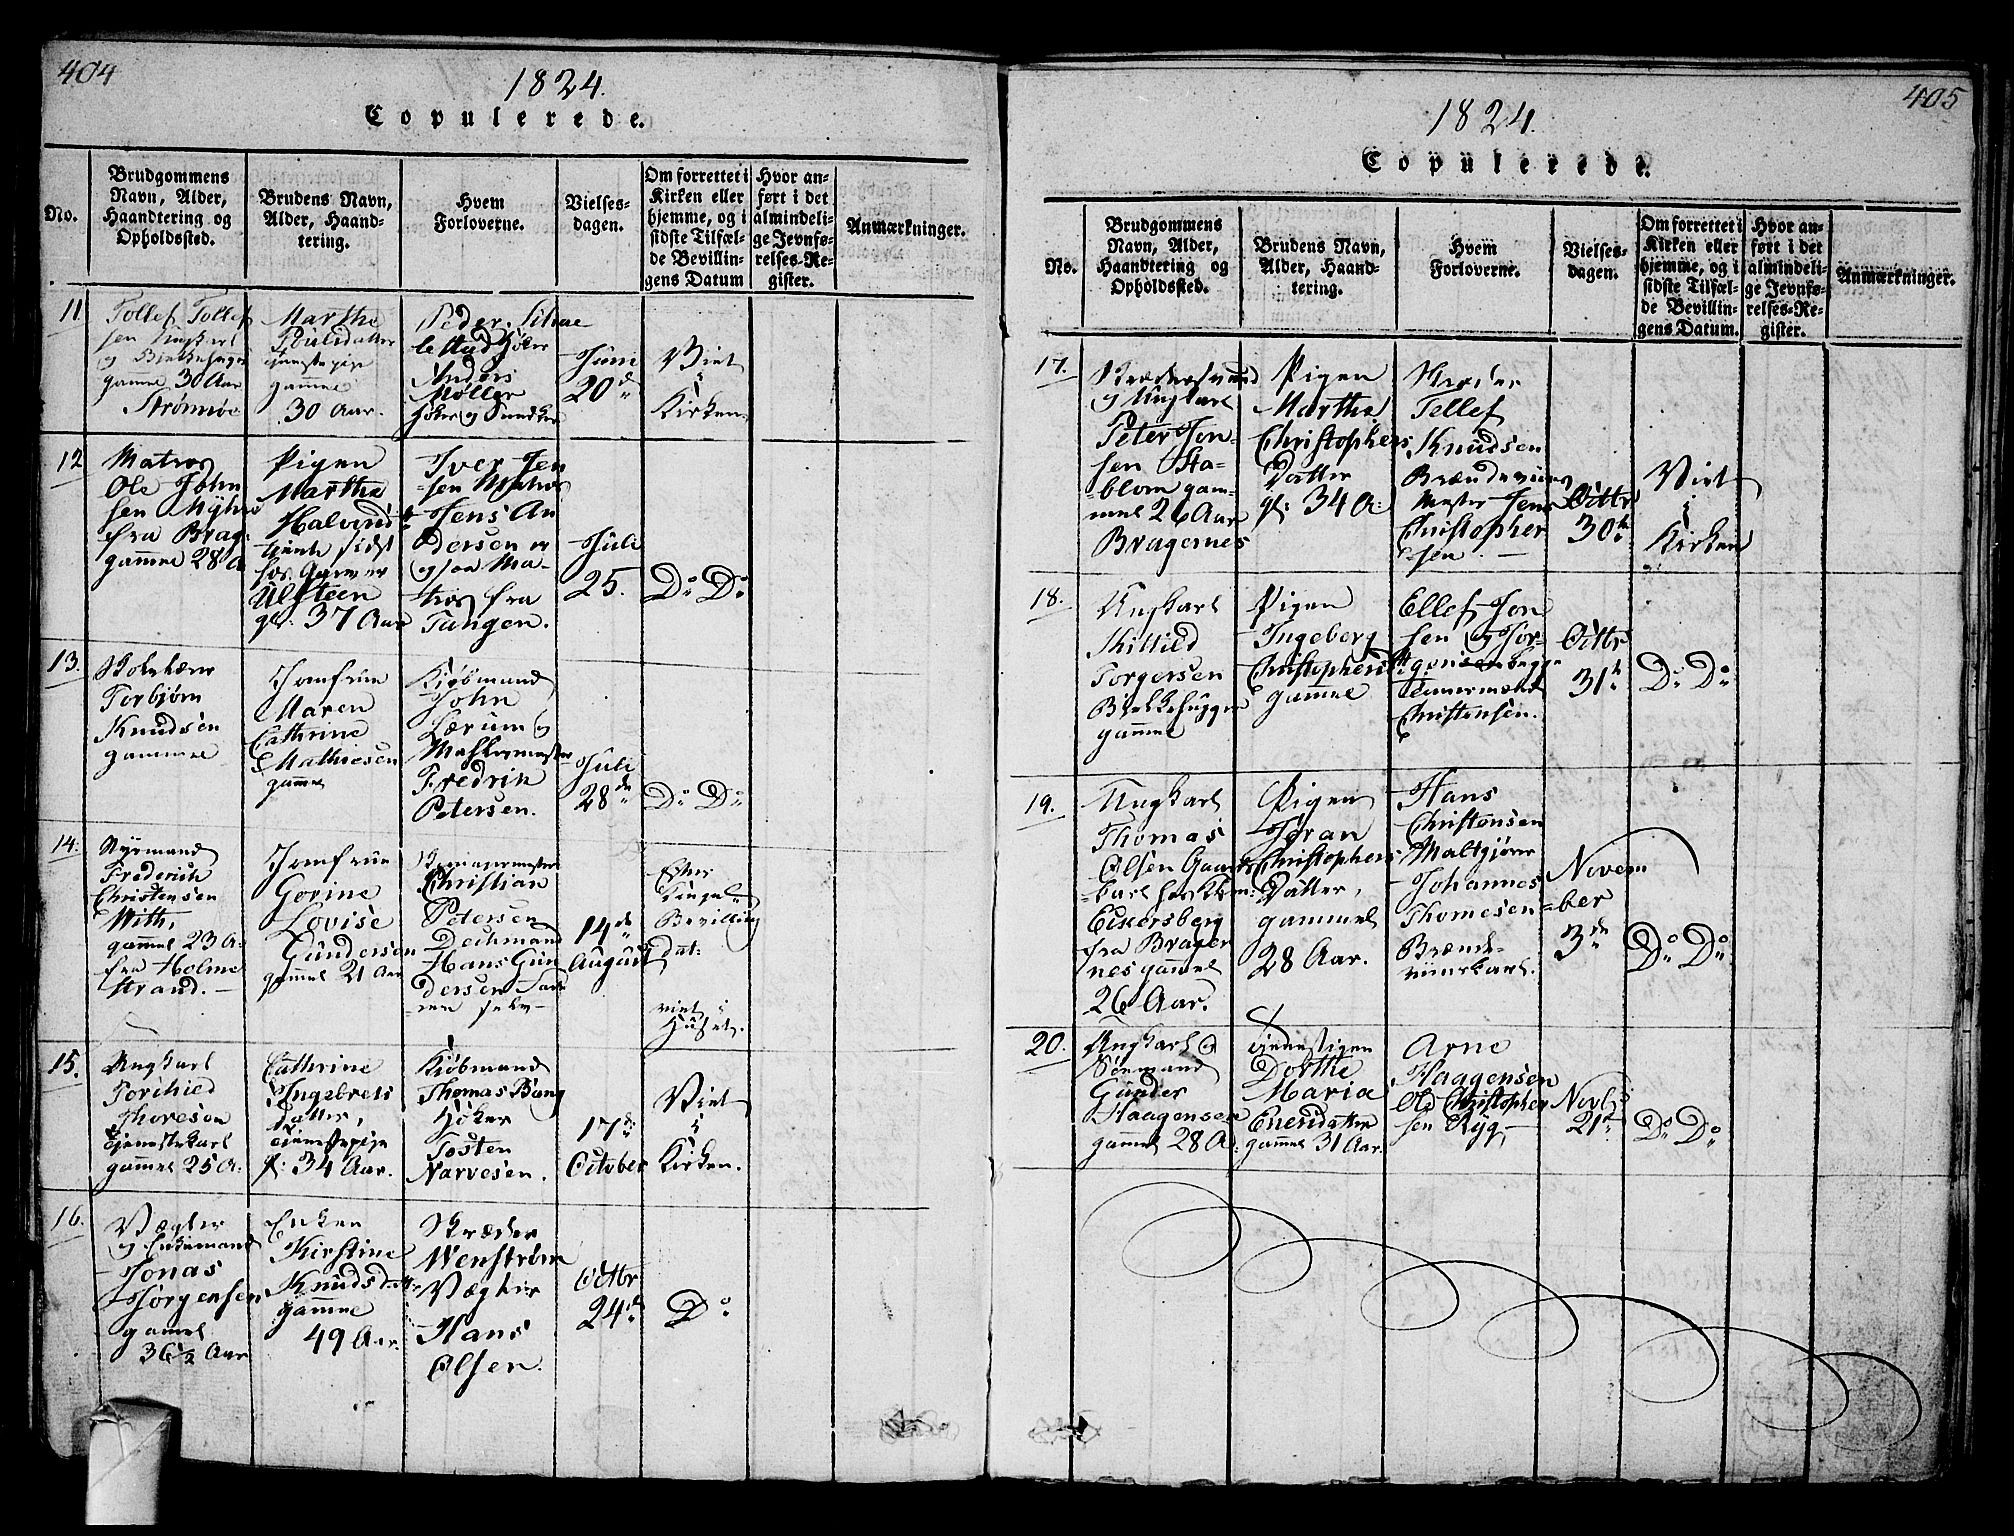 404
1824.
Copulerede.
No.
Brudgommens Navn, Alder, Haandtering og Opholdssted.
Brudens Navn, Alder, Haandtering.
Hvem Forloverne.
Vielsesdagen.
Om forrettet i Kirken eller hjemme, og i sidste Tilfælde Bevillingens Datum
Hvor anført i det almindelige Jevnførelses-Register.
Anmærkninger.
11
Tollef Tollef
sen Ungkarl
og
gamme 30 Aar
Strømsøe
Marthe
Poulsdatter
tjenestepige
gamme
30 Aar.
Peder
Anders
Møller
Juni
20de
Viet
i
Kirken
12
Matros
Ole John
sen
fra Brag:
gamme 28 A
Pigen
Marthe
tjente sidst
hos
Ulsteen
gl. 37 Aar
Iver Jen
sen Matros
Jens An
dersen
og
tros fra
Tangen.
Juli
25.
Do Do
13.
Torbjørn
Knudsen
gamme
Jomfrue
Maren
Cathrine
Mathiesen
gamme
Kiøbmand
John
Lærum og
Fredrik
Petersen.
Juli
28de
Do Do
14.
Frederich
Christensen
With,
gammel 23 A.
fra Holme
strand.
Jomfrue
Gorine
Lovise
Gundersen
gammel 21 Aar
Christian
Petersen
Dechmand
Hans Gun
dersen
14de
August
Efter
Bevilling
dat:
viet i
Huset.
15.
Ungkarl
Thoresen
Tjenestekarl
gammel 25 A.
Cathrine
Ingebrets
datter,
tjenestepige
gl: 34 Aar.
Kiøbmand
Thomas Bang
Høker
Tosten
Narvesen.
17de
October
Viet
i
Kirken.
16.
Vægter
og Enkemand
Jonas
Jørgensen
gamel
36 1/2 Aar
Enken
Kirstine
Knudsdatter
gamme
49 Aar.
Skræder
Wenstrøm
Vægter
Hans
Olsen.
Octbr
24de
Do
405
1824.
Copulerede.
No.
Brudgommens Navn, Alder, Haandtering og Opholdssted.
Brudens Navn, Alder, Haandtering.
Hvem Forloverne.
Vielsesdagen.
Om forrettet i Kirken eller hjemme, og i sidste Tilfælde Bevillingens Datum.
Hvor anført i det almindelige Jevnførelses-Register.
Anmærkninger.
17.
Skrædersvend
og Ungkarl
Peter Jon-
sen Sta-
blom gam-
mel 26 Aar
Bragernes
Pigen
Marthe
Christophers
Datter
gl: 34 A:
Skræder
Tellef
Knudsen
Mester Jens
Christopher
sen.
Octbr
30te
Viet
i
Kirken
18.
Ungkarl
Torgersen
gamme
Pigen
Ingeborg
Christophersd
gamme
Ellef Jon
sen og Jør-
Tømermænd
Christensen.
Octbr
31te
Do Do
19.
Ungkarl
Thomas
Olsen Gaards
karl hos
Eckersberg
fra Brager
nes gammel
26 Aar.
Pigen
Jøran
Christophers
Datter,
gammel
28 Aar.
Hans
Christensen
Maltgjører
Johannes
Thomesen
Brænde-
viinskarl.
Novem
ber
3de
Do Do
20.
Ungkarl og
Søemand
Gunder
Haagensen
gammel 28 A.
Tjenestepigen
Dorthe
Maria
gammel 31 Aar.
Arne
Haagensen
Ole Christopher
sen Ryg
Novbr
21de
Do Do